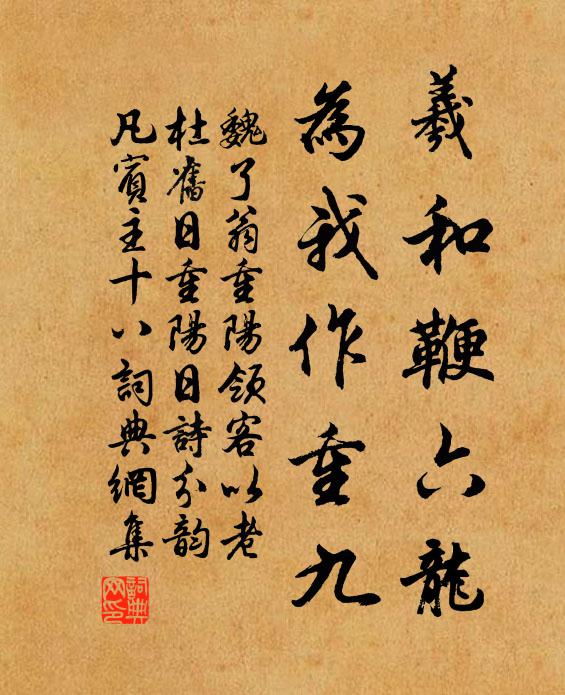 羲和鞭六龍
為我作重九
魏了翁重陽領客以老
杜舊日重陽日詩分韵
凡賓主十八詞典網集
詞典網印